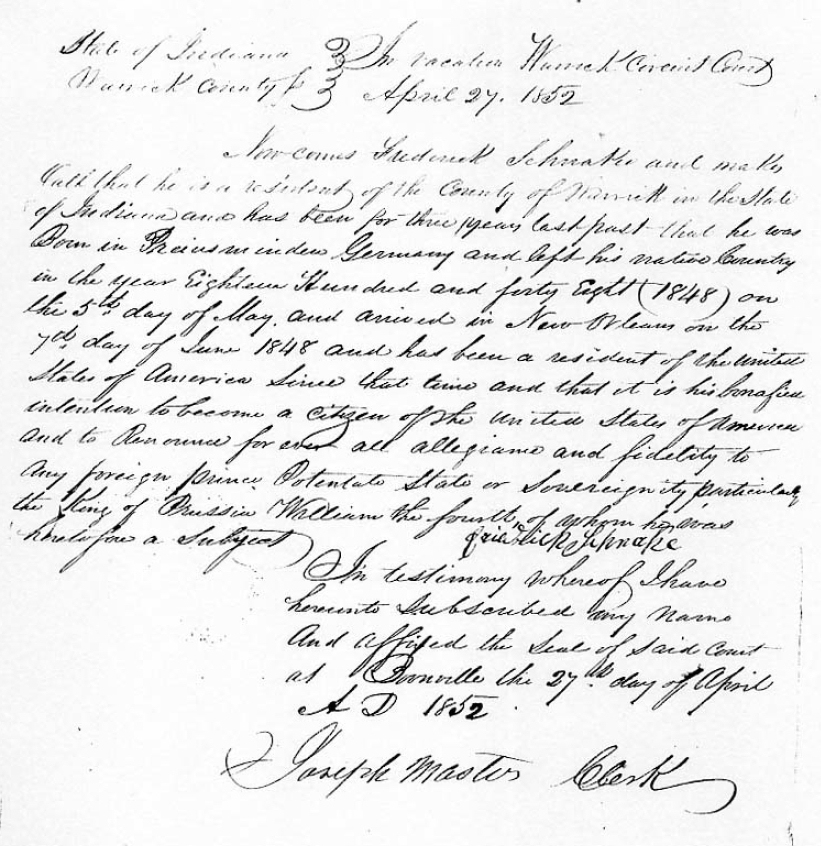 State of Indiana } In vacation Warrick Circuit Court
Warrick County } April 27. 1852
Now comes Frederick Schnake and makes
Oath that he is a resident of the County of Warrick in the State
of Indiana and has been for three years last past that he was
Born in Preiusminden Germany and left his native Country
in the year Eighteen Hundred and forty Eight (1848) on
the 5th day of May, and arrived in New Orleans on the
7th day of June 1848 and has been a resident of the United
States of America Since that time and that it is his bonafied
intention to become a citizen of the United States of America
and to Renounce for ever all allegiance and fidelity to
any foreign prince Potentate State or Sovereignity particularly
the King of Prussia William the fourth, of whom he was
heretofore a Subject
friedrick Schnake
In testimony whereof I have
hereunto Subscribed my name
And affixed the Seal of Said Court
at Boonville the 27th day of April
A D 1852
Joseph Master Clerk